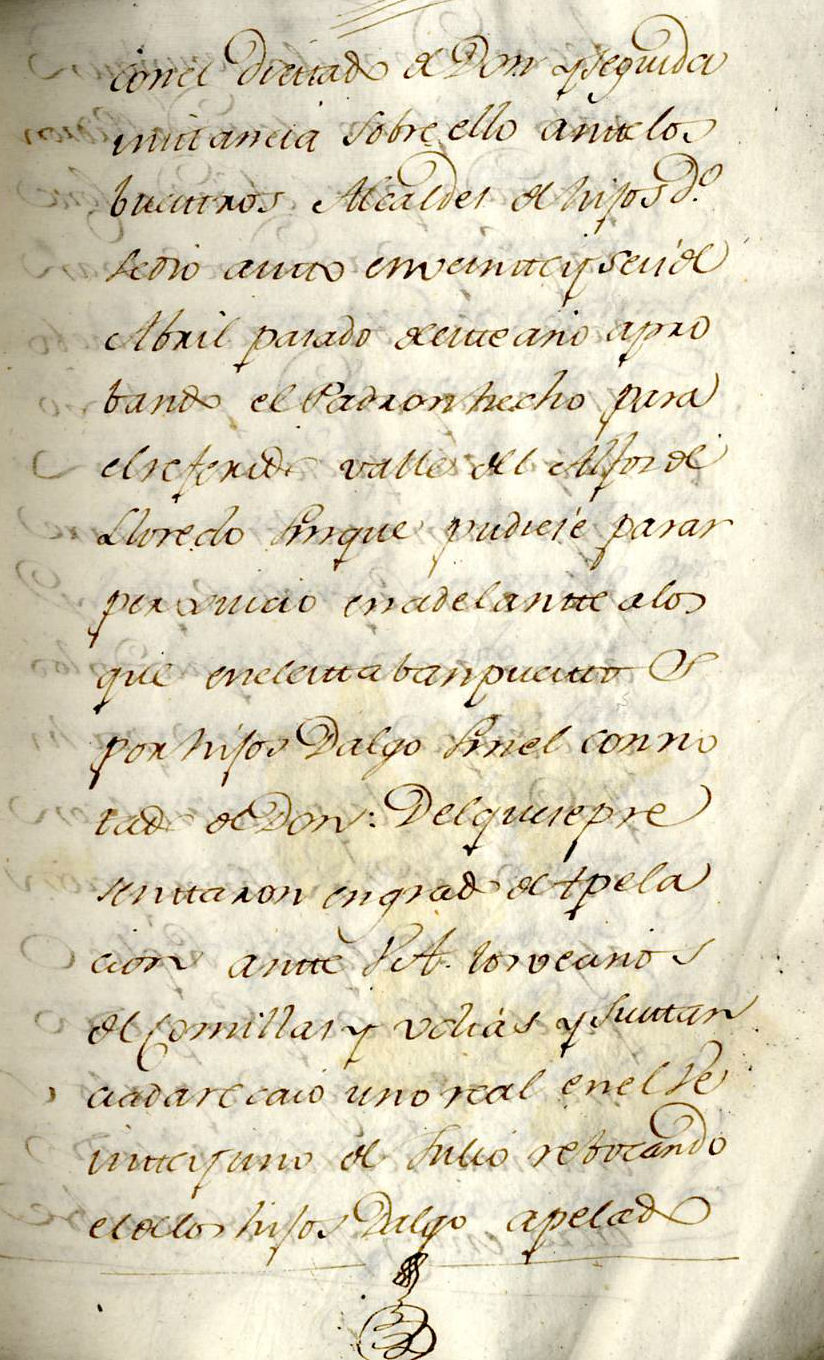 conel dicttado de Don y seguida
insttancia sobre ello antte los
buesttros Alcaldes de hijos d.º
se dio autto en veintte y seis de
Abril pasado de estte año apro
bando el Padron hecho para
el referido valle del Alfoz de
Lloredo sin que pudiese parar
perxuicio en adelantte a los
que en el esttaban puestto s
por hijos Dalgo sin el conno
tado de Don: Del qual se pre
senttaron en grado de Apela
cion antte V.A. los vecino s
de Comillas y Udias y susttan
ciada recaio uno real en el Ve
intte y uno de Julio rebocando
el de los hijos Dalgo apelado